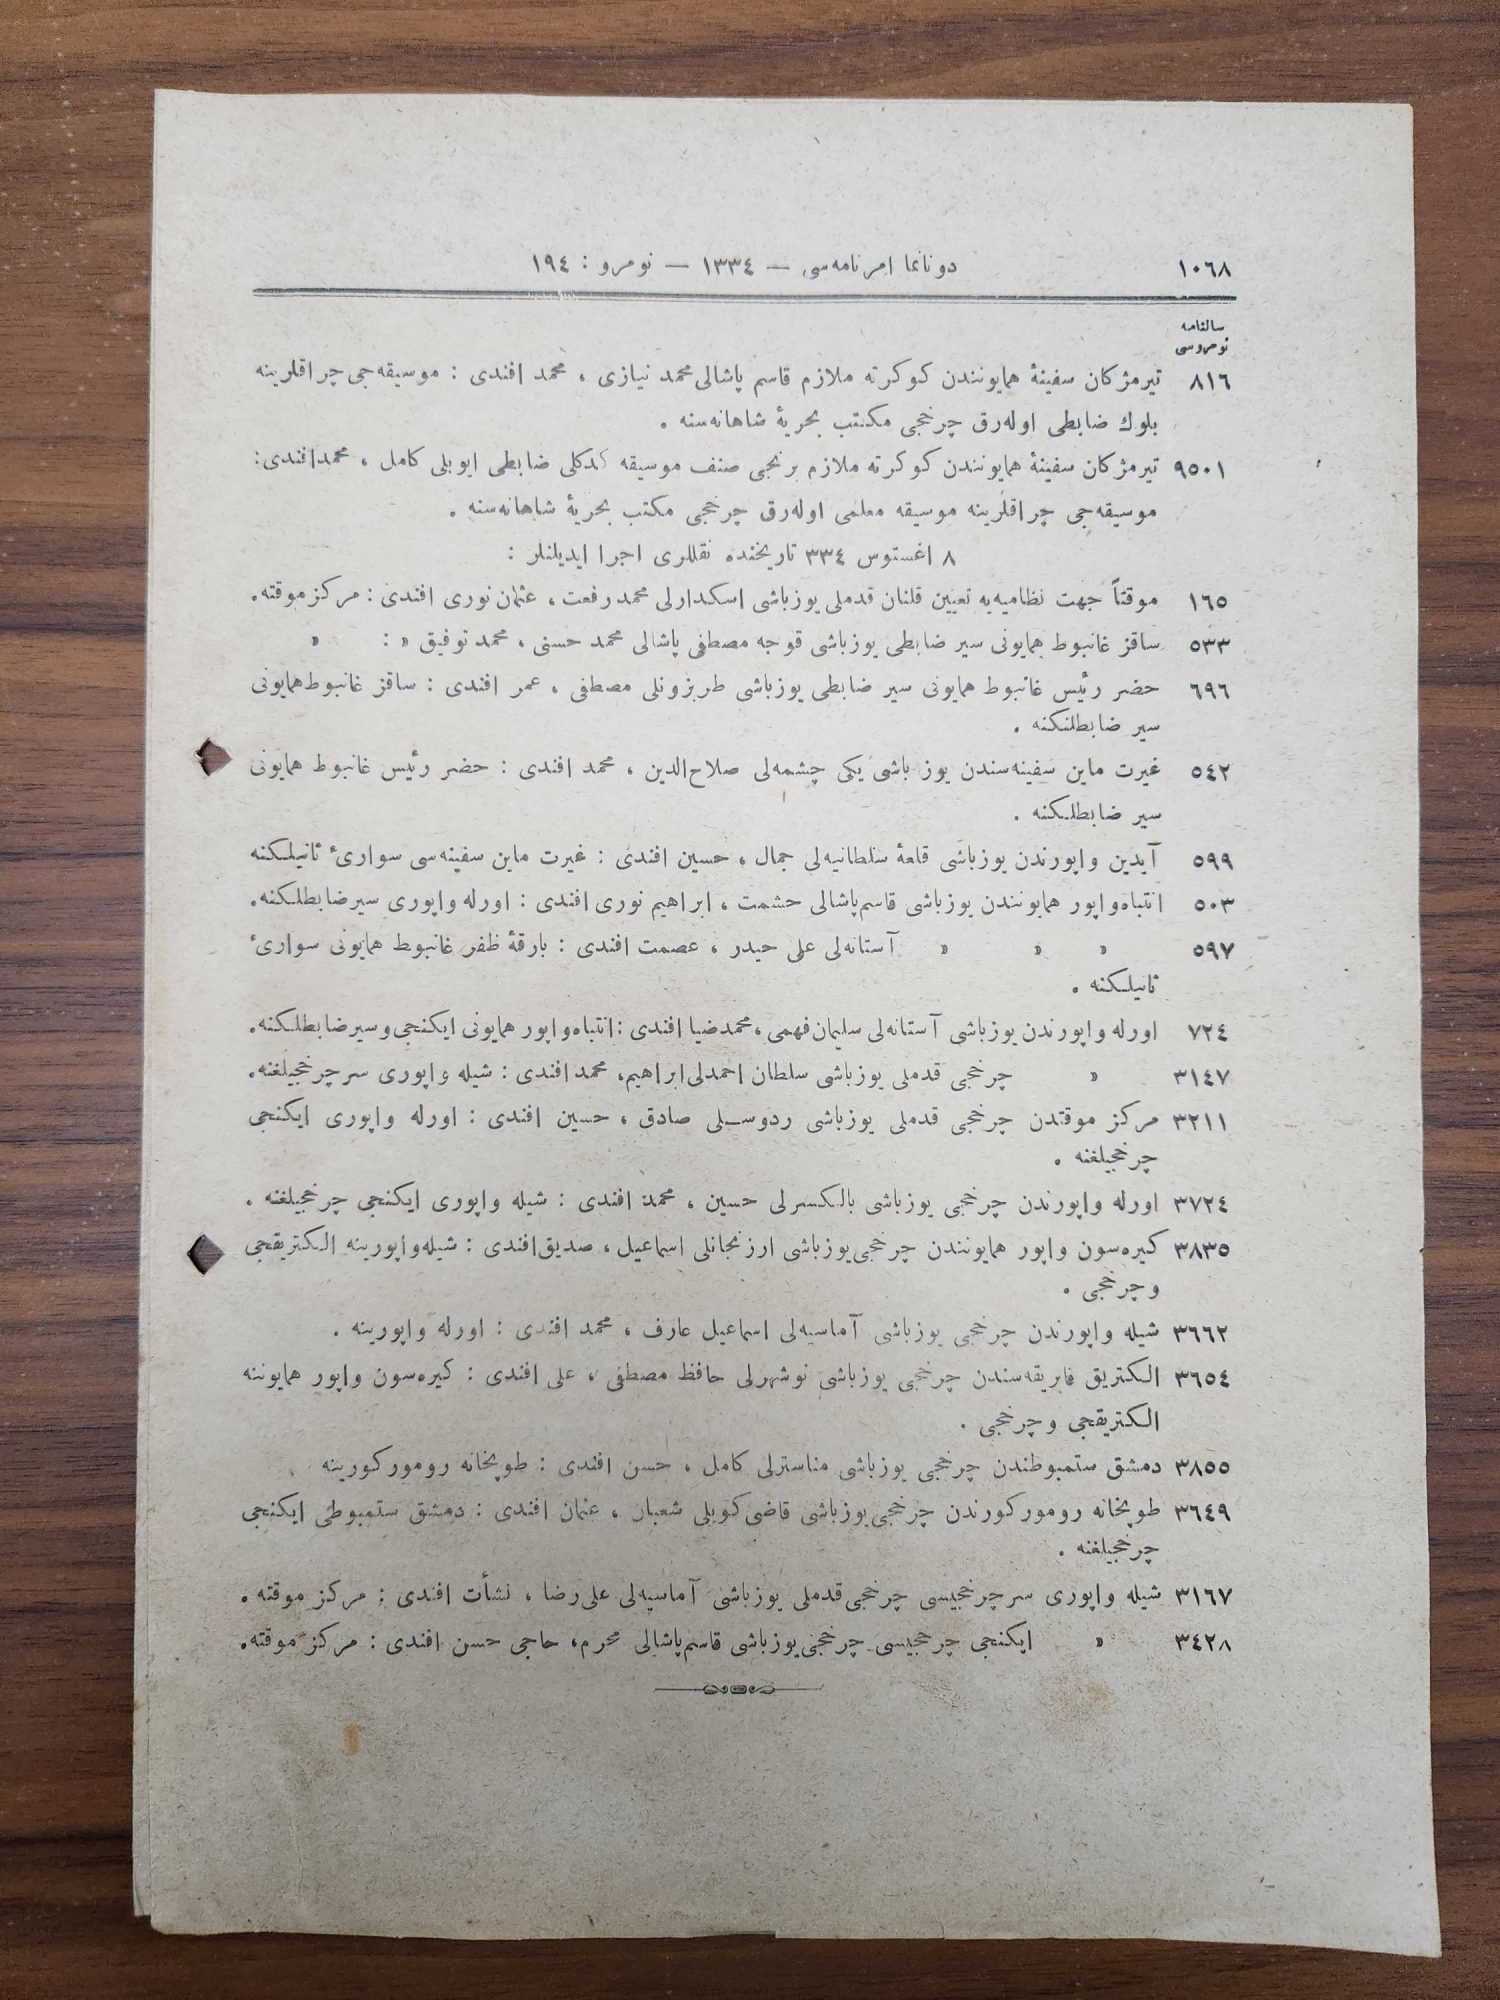 ١٠٦٨ دونانما امرنامه‌سی — ١٣٣٤ — نومرو : ١٩٤
سالنامه
نومروسی
٨١٦ تیرمژكان سفینۀ همایونندن كوكرته ملازم قاسم پاشالی محمد نیازی ، محمد افندی : موسیقه‌جی چراقلرینه
بلوك ضابطی اوله‌رق چرخجی مكتب بحریۀ شاهانه‌سنه .
٩٥٠١ تیرمژكان سفینۀ همایونندن كوكرته ملازم برنجی صنف موسیقه كدكلی ضابطی ایوبلی كامل ، محمدافندی:
موسیقه‌جی چراقلرینه موسیقه معلمی اوله‌رق چرخجی مكتب بحریۀ شاهانه‌سنه .
٨ اغستوس ٣٣٤ تاریخنده نقللری اجرا ایدیلنلر :
١٦٥ موقتاً جهت نظامیه‌یه تعیین قلنان قدملی یوزباشی اسكدارلی محمد رفعت ، عثمان نوری افندی : مركز موقته.
٥٣٣ ساقز غانبوط همایونی سیر ضابطی یوزباشی قوجه مصطفی پاشالی محمد حسنی ، محمد توفیق » : »
٦٩٦ حضر رئیس غانبوط همایونی سیر ضابطی یوزباشی طربزونلی مصطفی ، عمر افندی : ساقز غانبوط همایونی
سیر ضابطلنكنه .
٥٤٢ غیرت ماین سفینه‌سندن یوز باشی یكی چشمه‌لی صلاح‌الدین ، محمد افندی : حضر رئیس غانبوط همایونی
سیر ضابطلكنه .
٥٩٩ آیدین واپورندن یوزباشی قلعۀ سلطانیه‌لی جمال ، حسین افندی : غیرت ماین سفینه‌سی سواریٔ ثانیلكنه
٥٠٣ انتباه‌واپور همایونندن یوزباشی قاسم‌پاشالی حشمت ، ابراهیم نوری افندی : اورله واپوری سیرضابطلكنه.
٥٩٧ » » » آستانه‌لی علی حیدر ، عصمت افندی : بارقۀ ظفر غانبوط همایونی سواریٔ
ثانیلكنه .
٧٢٤ اورله واپورندن یوزباشی آستانه‌لی سلیمان‌فهمی ، محمدضیا افندی : انتباه‌واپور همایونی ایكنجی‌وسیرضابطلكنه.
٣١٤٧ » چرخجی قدملی یوزباشی سلطان احمدلی‌ابراهیم، محمدافندی : شیله واپوری سرچرخجیلغنه.
٣٢١١ مركز موقتدن چرخجی قدملی یوزباشی ردوسلی صادق ، حسین افندی : اورله واپوری ایكنجی
چرخجیلغنه .
٣٧٢٤ اورله واپورندن چرخجی یوزباشی بالكسرلی حسین ، محمد افندی : شیله واپوری ایكنجی چرخجیلغنه .
٣٨٣٥ كیره‌سون واپور همایونندن چرخجی‌یوزباشی ارزنجانلی اسماعیل، صدیق‌افندی : شیله‌واپورینه الكتریقجی
و چرخجی .
٣٦٦٢ شیله واپورندن چرخجی یوزباشی آماسیه‌لی اسماعیل عارف ، محمد افندی : اورله واپورینه .
٣٦٥٤ الكتریق فابریقه‌سندن چرخجی یوزباشی نوشهرلی حافظ مصطفی ، علی افندی : كیره‌سون واپور همایوننه
الكتریقجی و چرخجی .
٣٨٥٥ دمشق ستمبوطندن چرخجی یوزباشی مناسترلی كامل ، حسن افندی : طوپخانه رومورکورینه
٣٦٤٩ طوپخانه رومورکورندن چرخجی‌یوزباشی قاضی‌كویلی شعبان ، عثمان افندی : دمشق ستمبوطی ایكنجی
چرخجیلغنه .
٣١٦٧ شیله واپوری سرچرخجیسی چرخجی‌قدملی یوزباشی آماسیه‌لی علی‌رضا ، نشأت افندی : مركز موقته .
٣٤٢٨ » ایكنجی چرخجیسی چرخجی‌یوزباشی قاسم‌پاشالی محرم، حاجی حسن افندی : مركز موقته.